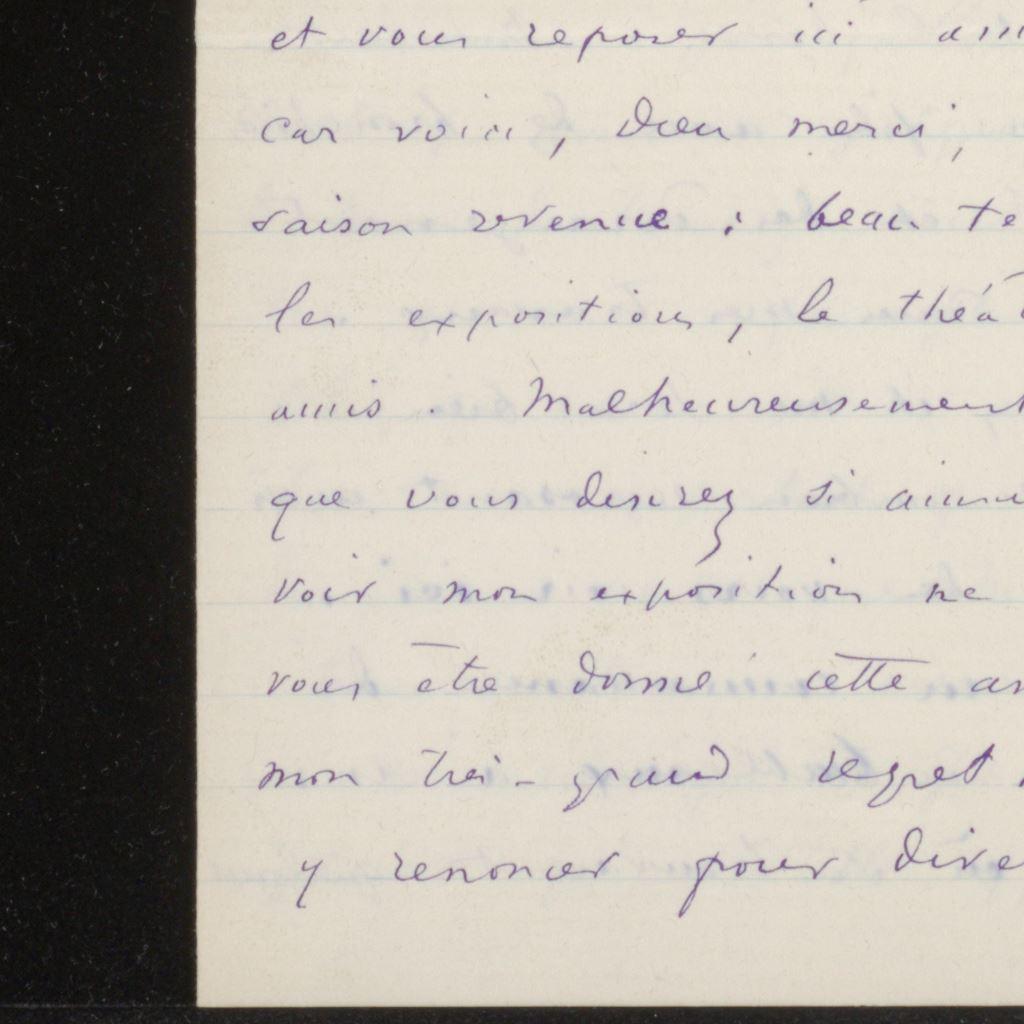 et vous reposer ici
car voici, dieu merci,
saison revenue : beau te
les expositions, le théât
amis. Malheureusement
que vous desirez si aima
voir mon exposition ne
vous être donné cette an
mon très-grand regret,
y renoncer pour dive